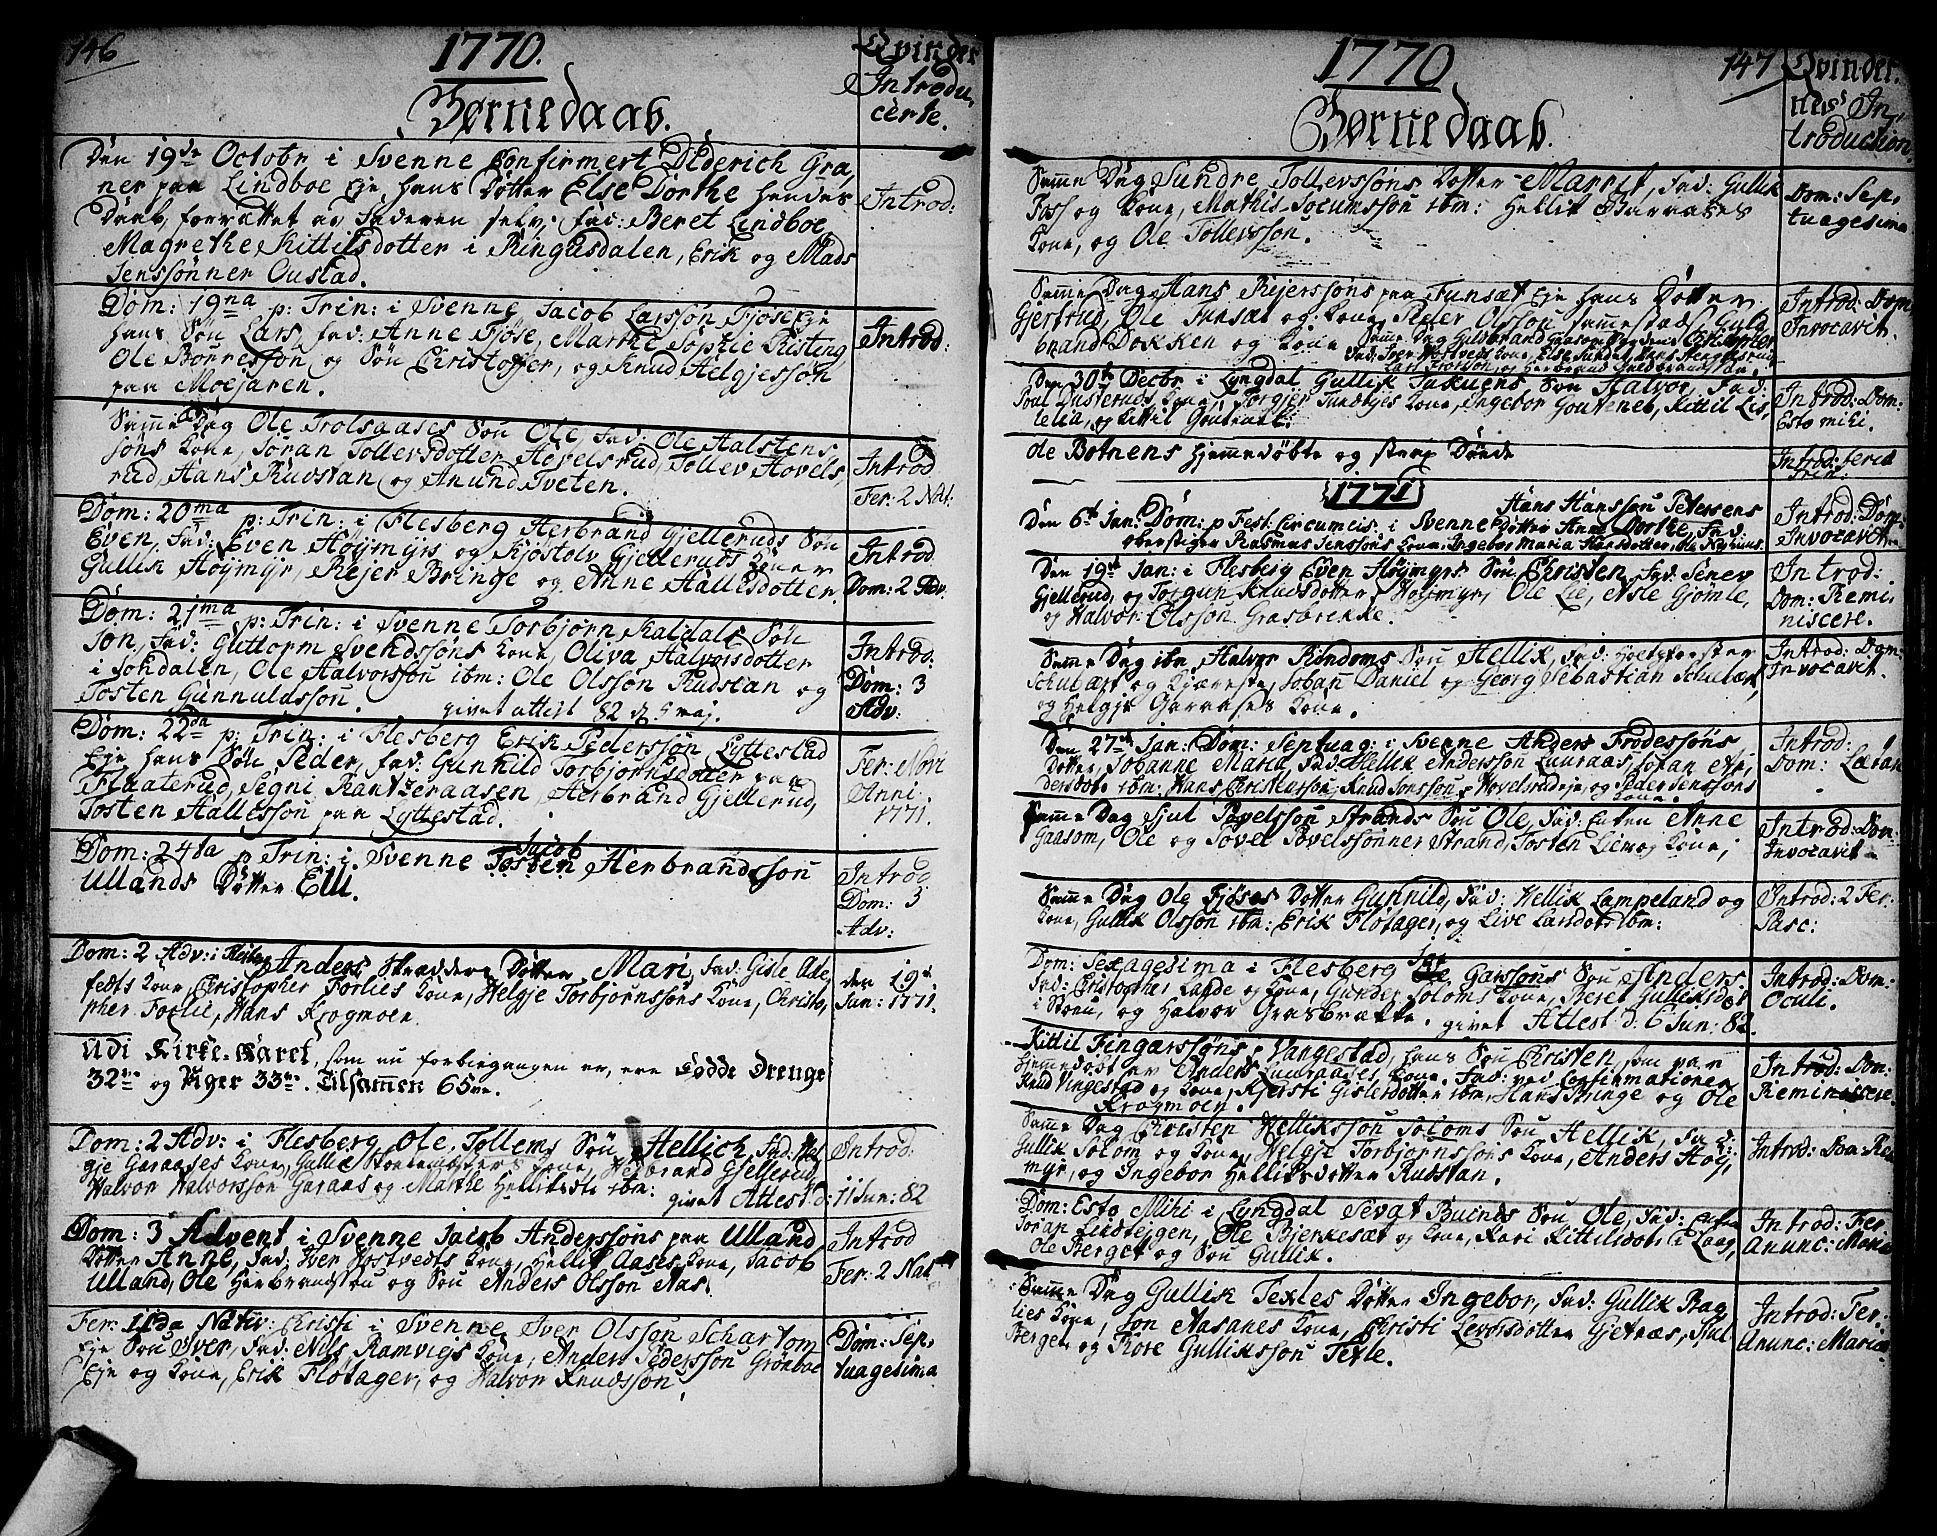 146
1770.
Børnedaab.
Qvinder
Introdu
certe.
Den 19de Octobr i Svenne Confirmert Diderich Gra,
ner paa Lindboe Eje hans Dotter Else Dorthe hendes
Daab, forrettet av Faderen selv; Fad: Beret Lindboe,
Magrethe Kittilsdotter i Ringnsdalen, Erik og Mads
Jenssønner Oustad.
Introd:
Dom: 19na p: Trin: i Svenne Jacob Larssøn Fjøse Eje
hans Søn Lars, Fad: Anne Fjøse, Marthe Sophie Risting
Ole Borressøn og Søn Christoffer, og Knud Helgjessøn
paa Moesaren.
Introd:
Samme Dag Ole Trolsaases Søn Ole, Fad: Ole Halstens,
søns Kone, Joran Tollevsdotter Hovelsrud, Tollev Hovels,
rud, Hans Rudstan og Anund Tveten.
Introd
Fer: 2 Nat:
Dom: 20ma p: Trin: i Flesberg Herbrand Gjelleruds Søn
Even, Fad: Even Høymyrs og Kjøstolv Gjelleruds Koner
Gullik Høymyr, Rejer Bringe og Anne Hallesdotter.
Introd
Dom: 2 Adv.
Dom: 21ma p: Trin: i Svenne Torbjørn Kaldals Søn
Jon, Fad: Guttorm Svendssøns Kone, Oliva Halvorsdotter
i Jondalen, Ole Halvorssøn ibm: Ole Olssøn Rudstan og
Tosten Gunnuldssøn. givet attest 82 d. 9 maj.
Introd:
Dom: 3
Adv:
Dom: 22da p: Trin: i Flesberg Erik Pederssøn Lyttestad
Eje hans Søn Peder, Fad: Gunhild Torbjørnsdotter paa
Flaaterud, Segni Rantzeraasen, Herbrand Gjellerud,
Tosten Hallessøn paa Lyttestad.
Fer: Novi
Anni:
1771.
Dom: 24ta p Trin: i Svenne Jacob Tosten Herbrandssøn
Ullands Dotter Elli.
Introd
Dom: 3
Adv:
Dom: 2 Adv: i Flesberg Anders Skreddere Dotter Mari, Fad: Gisle Ade,
fedts Kone, Christopher Førlies Kone, Helgje Torbjørnssøns Kone, Christo,
pher Førlie, Hans Krogmoen.
den 19d
Jan: 1771.
Udi Kirke-Aaret, som nu forbigangen er, ere Fødde Drenge
32ve og Piger 33ve. Tilsammen 65ve.
Dom: 2 Adv: i Flesberg Ole Tollems Søn Hellich, Fad: Hel
gje Garaases Kone, Gullic Kone, Herbrand Gjellerud,
Halvor Halvorssøn Garaas og Marthe Helliksdt ibm: givet Attest d: 11 Jun: 82
Introd:
Dom: 3 Advent i Svenne Jacob Anderssøns paa Ulland
Dotter Anne, Fad: Iver Høstvedts Kone, Hellik Aases Kone, Jacob
Ulland, Ole Herbrandssøn og Søn Anders Olssøn Aas.
Introd
Fer: 2 Nat
Fer: IIda Nativ: Christi i Svenne Iver Olssøn Schartom
Eje Søn Iver, Fad: Nils Ramviegs Kone, Anders Pederssøn Grønboe
Eje og Kone, Erik Flotager, og Halvor Knudssøn.
Dom: Sep,
tuagesima
1770
147
Børnedaab.
Qvinder.
nes In,
troduction.
Samme Dag Sundre Tollevssøns Dotter Marrit, Fad: Gullik
Foss og Kone, Mathis Jocumssøn ibm: Hellik Garaases
Kone, og Ole Tollevssøn.
Dom: Sep,
tuagesima
Samme Dag Hans Rejerssøns paa Funsæt Eje hans Dotter
Gjertrud, Ole Funsæt og Kone, Peder Olssøn sammestads Guld
brand Dokken og Kone
Introd: Dom
Invocavit.
Samme Dag Guldbrand Gaasom
Fad: Iver Høstveds Kone, Else
Den 30te Decbr i Lyngdal Gullik Taskuens Søn Halvor, Fad:
Joul Dusteruds Kone, Torgjer Tunæbyes Kone, Ingebor Goutenet, Kittil Lis,
lelia, og Kittil
Introd: Dom:
Esto mihi.
Ole Botnens hjemmedøbte og strax Døede
Introd: feria
Trin:
1771
Den 6te Jan: Dom: p Fest: Circumcis. i Svenne Hans Hanssøn Petersens
Dotter Anne Dorthe, Fad:
oberstiger Rasmus Jenssøns Kone, Ingebor Maria Hansdotter, Ole
Introd: Dom:
Invocavit
Den 19d Jan: i Flesberg Even Høymyrs Søn Christen, Fad: Senev
Gjellerud, og Torgun Knudsdotter Høymyr, Ole Lie, Asle Gjømle,
og Halvor Olssøn Grasbrekke.
Introd:
Dom: Remi,
niscere.
Samme Dag ibm Halvor Rindoms Søn Hellik, Fad: Holtzførster
Schubart og Kjæreste, Johan Daniel og Georg Sebastian Schubart,
og Helgje Garaases Kone.
Introd: Dom:
Invocavit.
Den 27d Jan: Dom: Septuag: i Svenne Anders Frodessøns
Dotter, Johanne Maria, Fad: Hellik Anderssøn Lauraas, Johan An,
dersdot: ibm: Hans Christenssøn, Knud Jonssøn Hovelsrudeje, og Peder Jenssøns
Kone.
Introd:
Dom: Lætare
Samme Dag Sjul Povelssøn Strands Søn Ole, Fad: Enken Anne
Gaasom, Ole og Povel Povelssønner Strand, Tosten Lien og Kone;
Introd: Dom:
Invocavit
Samme Dag Ole Fjøses Dotter Gunnild, Fad: Hellik Lampeland og
Kone, Gullik Olssøn ibm: Erik Flotager, og Live Larsdot: ibm:
Introd: 2 Fer.
Pasc:
Dom: Sexagesima i Flesberg Ole Garssøns Søn Anders.
Fad: Christopher Lande og Kone, Gunder Soloms Kone, Beret Gulliksdot
i Støen, og Halvor Grasbrække. givet Attest: d: 6 Jun: 82.
Introd: Dom:
Oculi.
Kittil Fingarssøns Vangestad, hans Søn Christen, som var
hjemmedøbt er Anders Lauraases Kone. Fad: ved Confirmationen
Knud Vingestad og Kone, Kjersti Gislesdotter ibm, Hans Bringe og Ole
Krogmoen.
Introd: Dom:
Reminiscere.
Samme Dag Christen Hellikssøn Soloms Søn Hellik, Fad:
Gullik Solom og Kone, Helgje Torbjørnssøns Kone, Anders Høy,
myr, og Ingebor Helliksdotter Rudstan.
Introd: Dom Re
Dom: Esto Mihi i Lyngdal Sevat Buinds Søn Ole, Fad: Enken
Joran Lindtejgen, Ole Bjerkesæt og Kone, Kari Kittilsdot: i Laag,
Ole Berget og Søn Gullik.
Introd: Fer.
Anunc: Mariæ
Samme Dag Gullik Texles Dotter Ingebor, Fad: Gullik Bag
lies Kone, Jon Aasanes Kone, Christi Levorsdotter Gjetraas, Sjul
Berget og Rore Gullikssøn Texle.
Introd: Fer.
Anunc: Mariæ